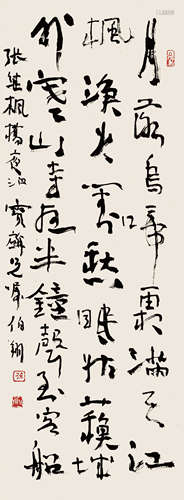 月落烏啼霜满天江
楓漁火对愁眠姑蘓城
外寒山寺夜半鐘聲到客船
張继楓橋夜泊 寶麟兄嘱 伯翔